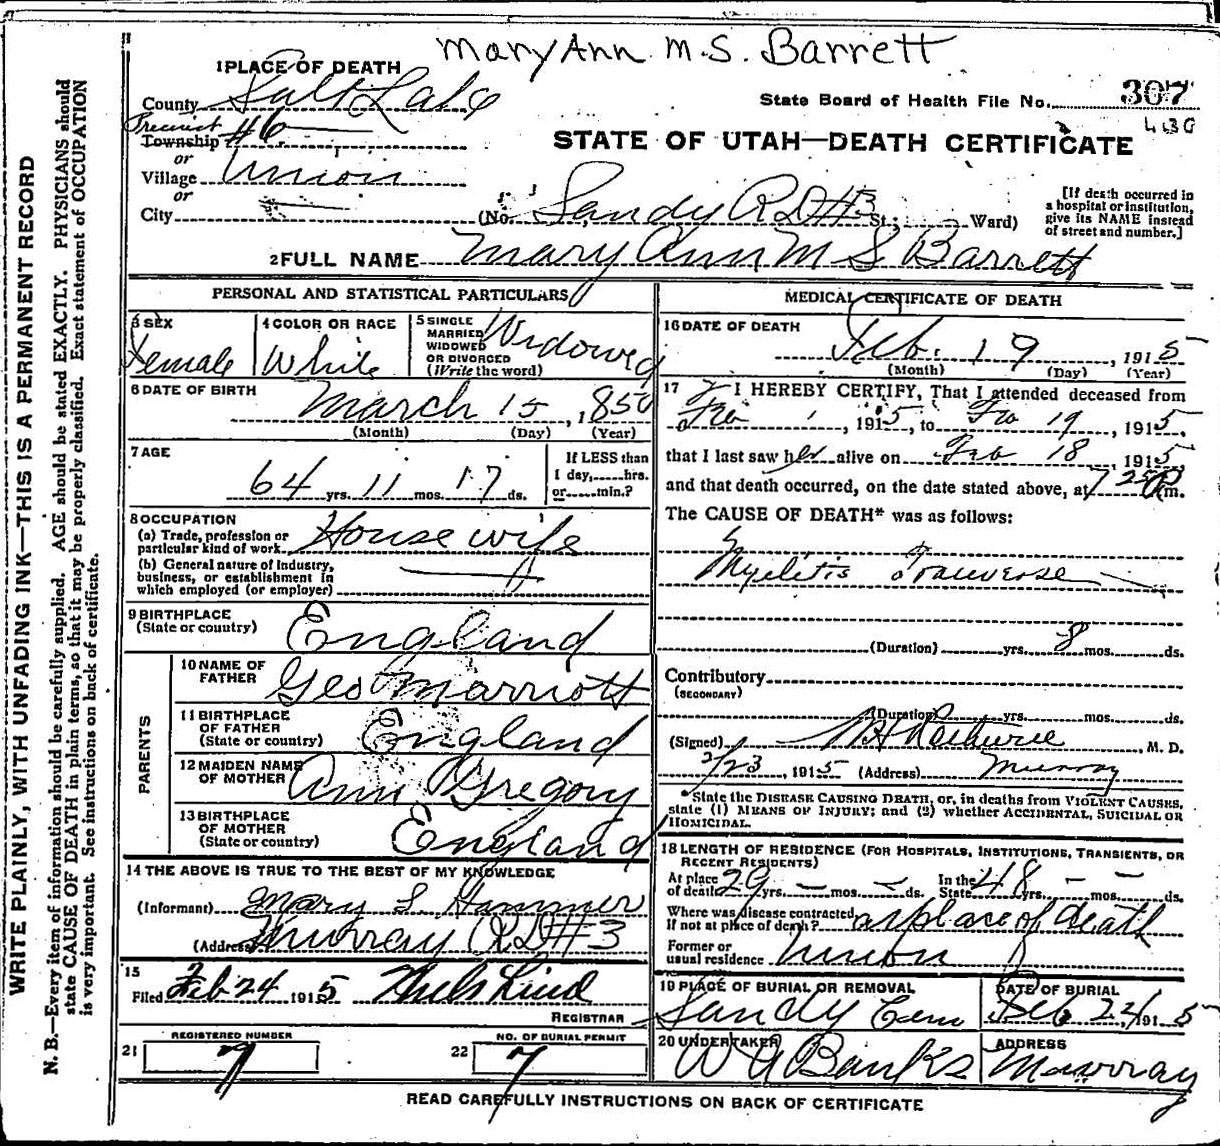 Mary Ann M.S. Barrett
1 PLACE OF DEATH
County Salt Lake
State Board of Health File No. 307
Precinct
Township #6
or
STATE OF UTAH—DEATH CERTIFICATE
Village Union
or
City
(No. Sandy RD #3 St.; Ward)
[If death occurred in a hospital or institution, give its NAME instead of street and number.]
2 FULL NAME Mary Ann M S Barrett
PERSONAL AND STATISTICAL PARTICULARS
3 SEX
Female
4 COLOR OR RACE
White
5 SINGLE MARRIED WIDOWED OR DIVORCED (Write the word)
Widowed
6 DATE OF BIRTH
March 15, 1850
(Month) (Day) (Year)
7 AGE
64 yrs. 11 mos. 17 ds.
If LESS than 1 day,......hrs. or......min.?
8 OCCUPATION
(a) Trade, profession or particular kind of work House wife
(b) General nature of industry, business, or establishment in which employed (or employer)
9 BIRTHPLACE
(State or country) England
PARENTS
10 NAME OF FATHER Geo Marriott
11 BIRTHPLACE OF FATHER (State or country) England
12 MAIDEN NAME OF MOTHER Ann Gregory
13 BIRTHPLACE OF MOTHER (State or country) England
14 THE ABOVE IS TRUE TO THE BEST OF MY KNOWLEDGE
(Informant) Mary S Hammer
(Address) Murray RD #3
15
Filed Feb 24 1915 Lind
REGISTRAR
21 REGISTERED NUMBER 7
22 NO. OF BURIAL PERMIT 7
MEDICAL CERTIFICATE OF DEATH
16 DATE OF DEATH
Feb. 19, 1915
(Month) (Day) (Year)
17 I HEREBY CERTIFY, That I attended deceased from
Feb 1, 1915, to Feb 19, 1915,
that I last saw her alive on Feb 18, 1915,
and that death occurred, on the date stated above, at 7 25 P m.
The CAUSE OF DEATH* was as follows:
Myelitis Transverse
(Duration) yrs. 8 mos. ds.
Contributory
(SECONDARY)
(Duration) yrs. mos. ds.
(Signed) M. D.
2/23, 1915 (Address) Murray
*State the DISEASE CAUSING DEATH, or, in deaths from VIOLENT CAUSES, state (1) MEANS OF INJURY; and (2) whether ACCIDENTAL, SUICIDAL OR HOMICIDAL.
18 LENGTH OF RESIDENCE (FOR HOSPITALS, INSTITUTIONS, TRANSIENTS, OR RECENT RESIDENTS)
At place of death 29 yrs. — mos. — ds. In the State 48 yrs. — mos. — ds.
Where was disease contracted If not at place of death? at place of death
Former or usual residence Union
19 PLACE OF BURIAL OR REMOVAL
Sandy Cem
DATE OF BURIAL
Feb 24 1915
20 UNDERTAKER
W G Banks
ADDRESS
Murray
READ CAREFULLY INSTRUCTIONS ON BACK OF CERTIFICATE
WRITE PLAINLY, WITH UNFADING INK—THIS IS A PERMANENT RECORD
N. B.—Every item of information should be carefully supplied. AGE should be stated EXACTLY. PHYSICIANS should
state CAUSE OF DEATH in plain terms, so that it may be properly classified. Exact statement of OCCUPATION
is very important. See instructions on back of certificate.